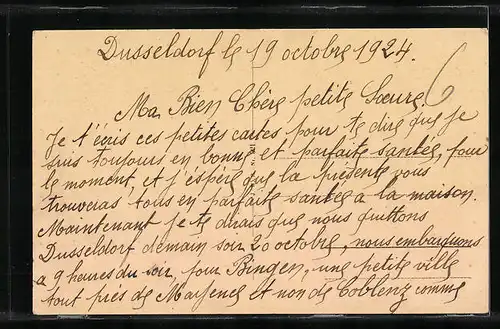 Dusseldorf le 19 octobre 1924.
6
Ma Bien Chère petite Soeure.
Je t'écris ces petites cartes pour te dire que je
suis toujours en bonne et parfaite santée, pour
le moment, et j'espère que la présente vous
trouveras tous en parfaite santée a la maison.
Maintenant je te dirais que nous quittons
Dusseldorf demain soir 20 octobre, nous embarquons
a 9 heures du soir, pour Bingen, une petite ville
tout près de Mayence et non de Coblenz comme